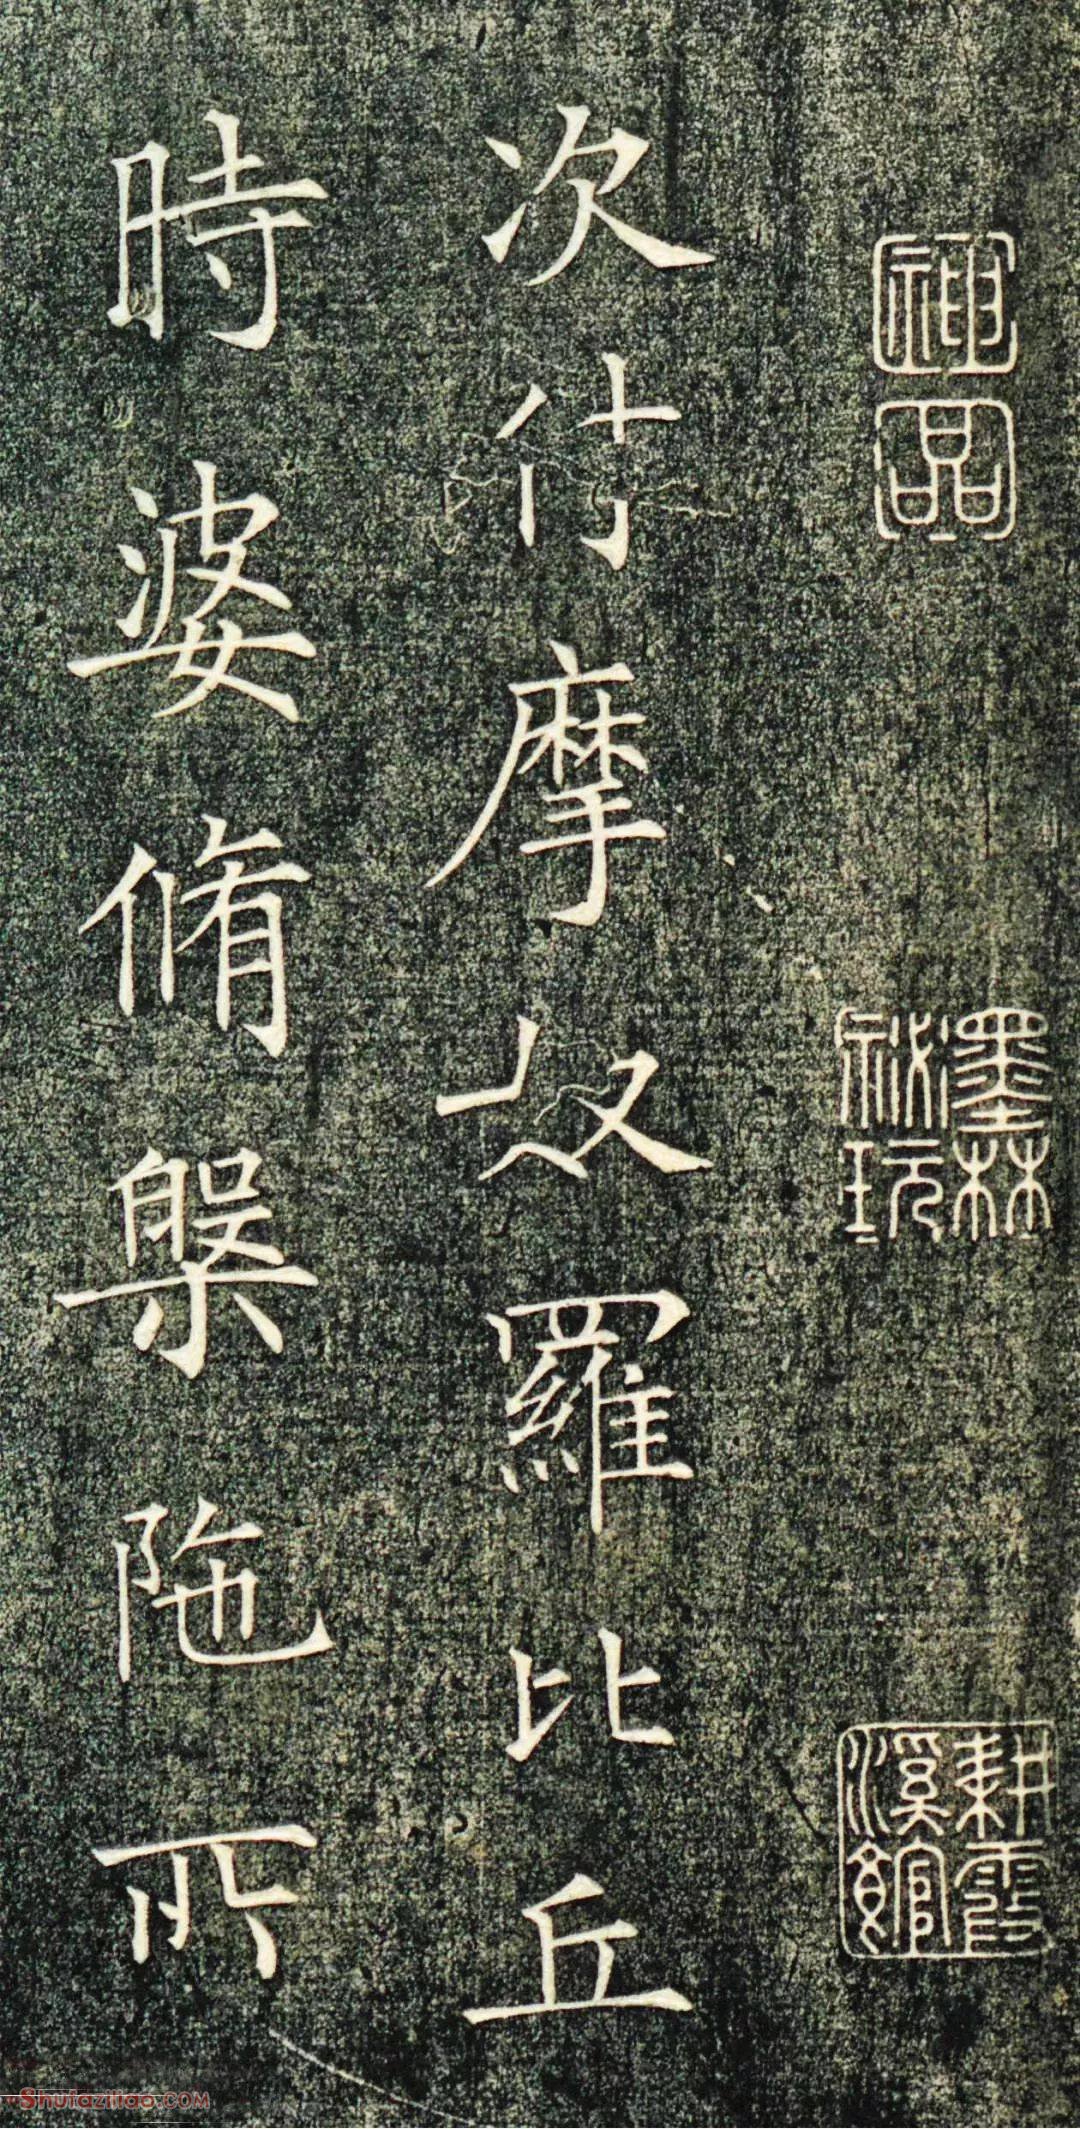 神品
墨林
秘玩
耕霞
溪館
次付摩奴羅比丘
時婆脩槃陁所
Shufaziliao.COM